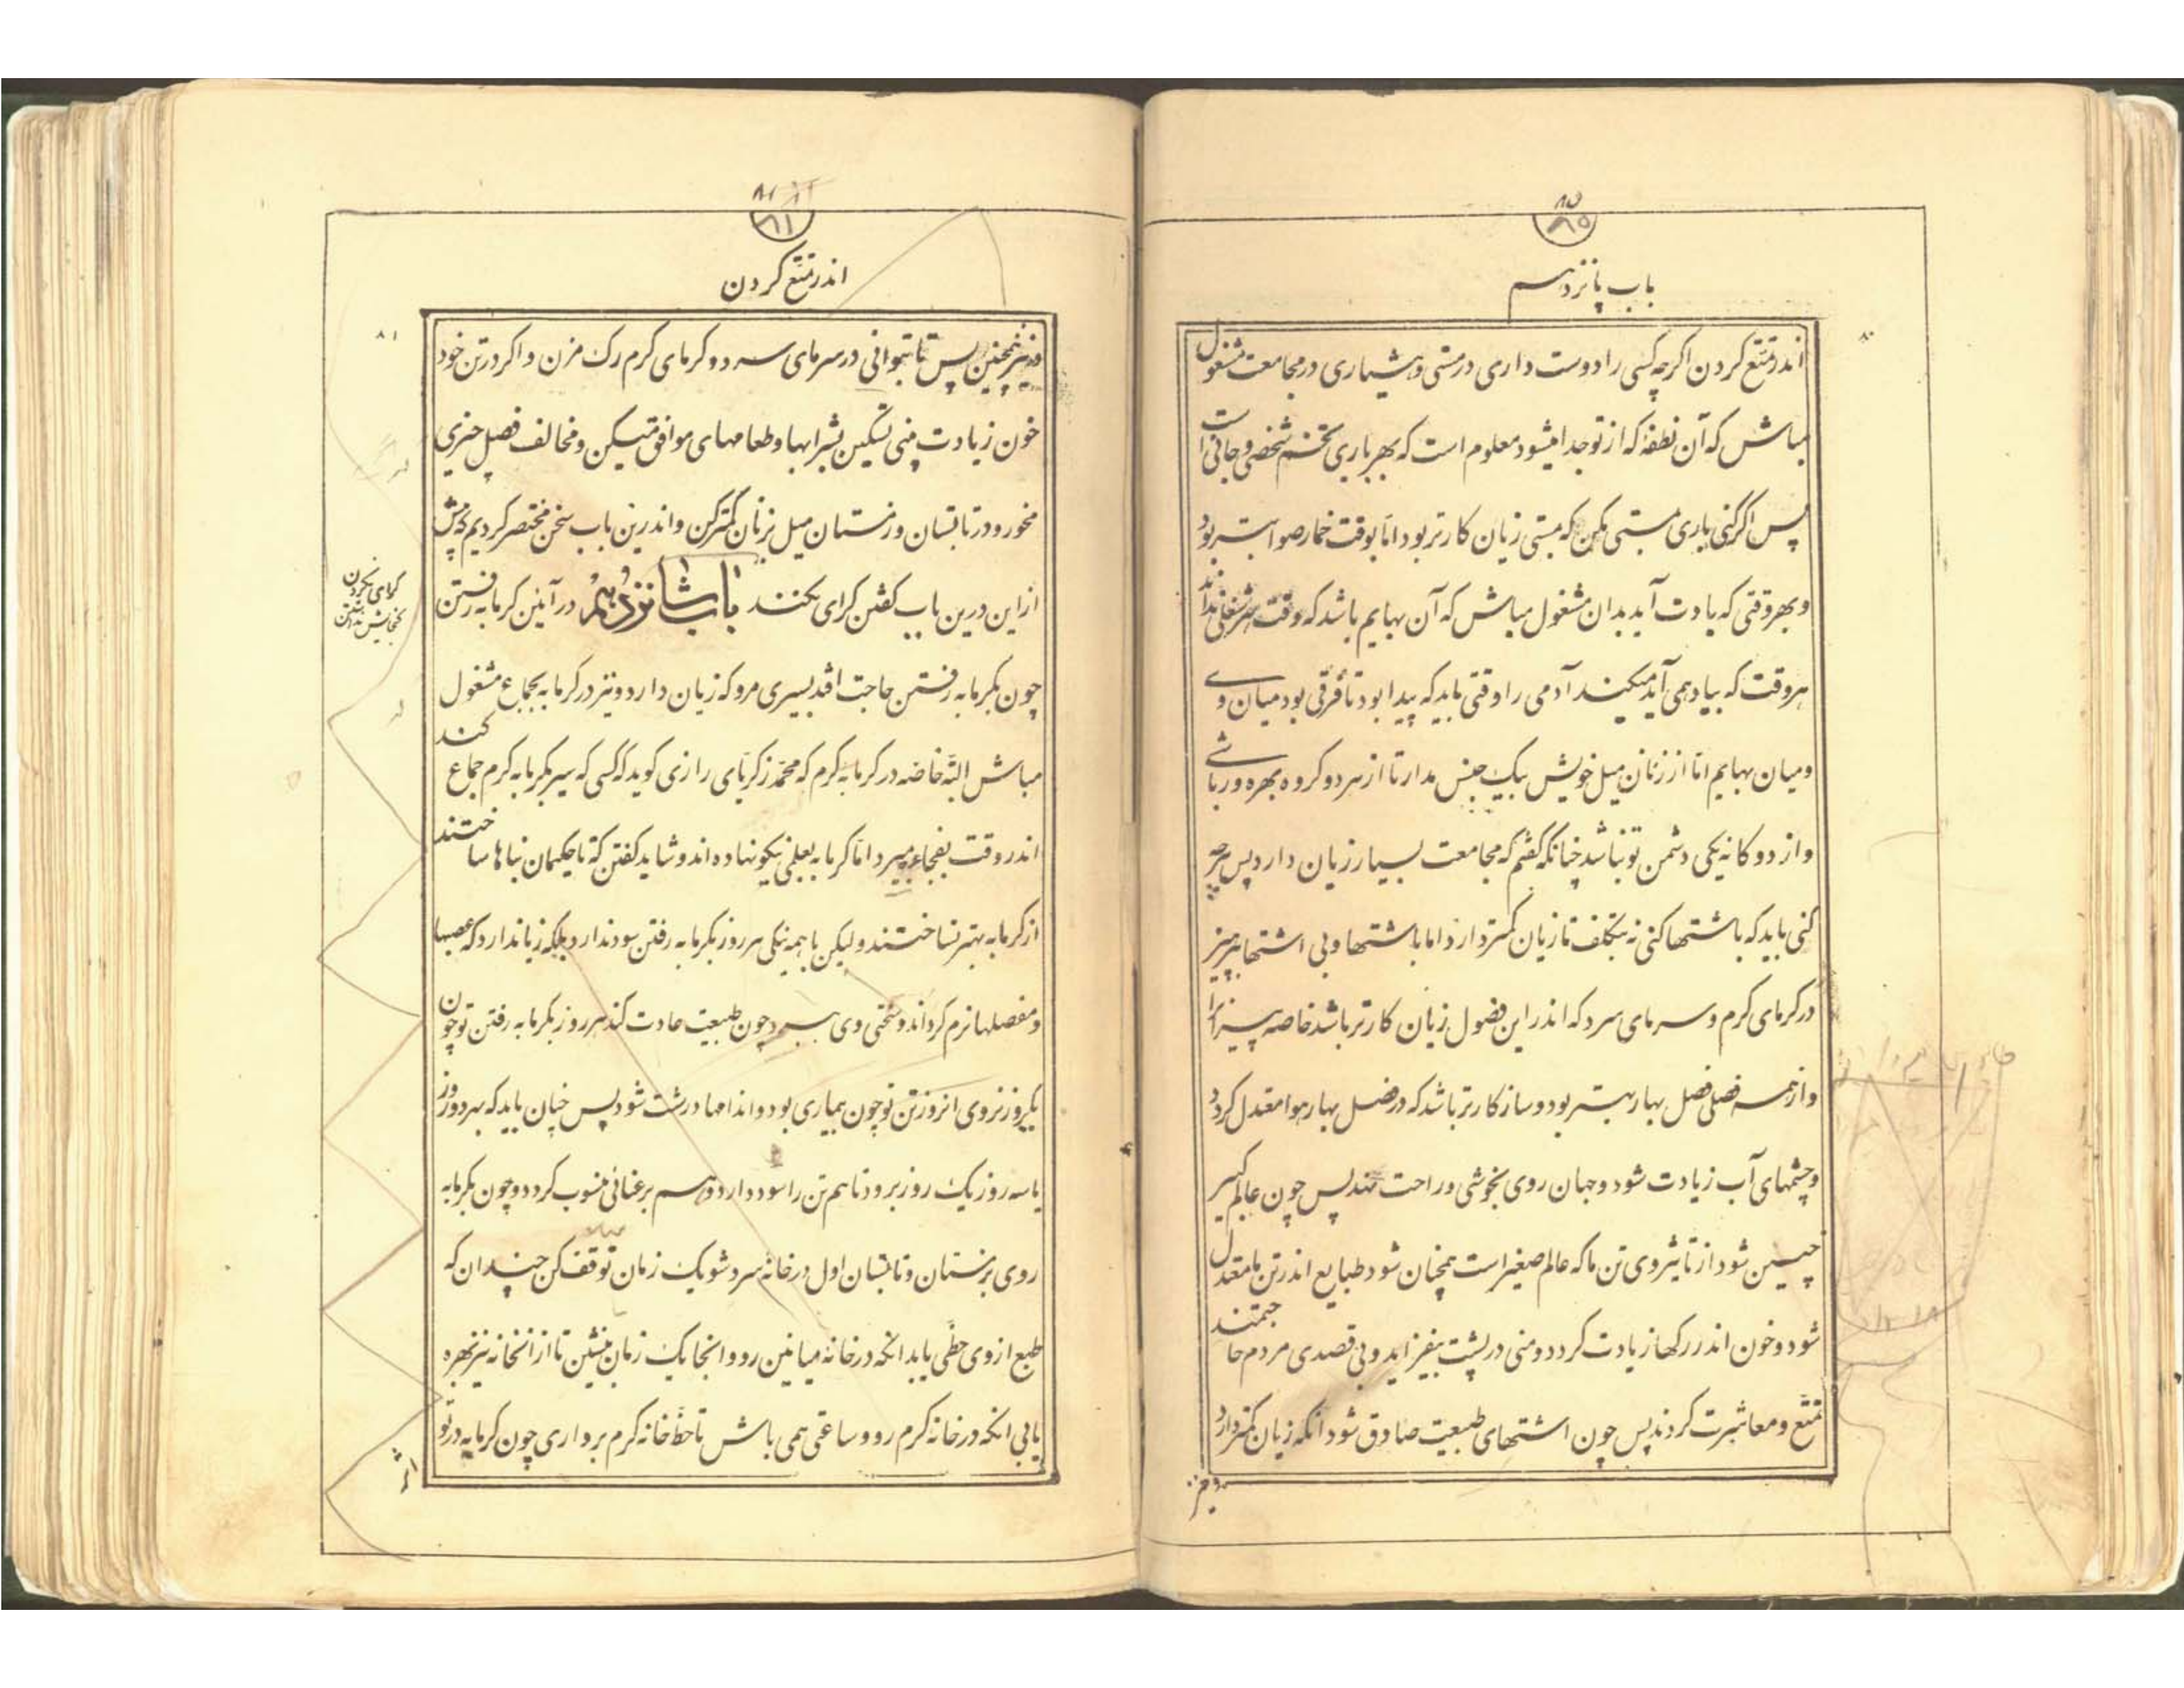 ۸۵
باب پانزدهم
۸۰
اندر تمتع کردن اگرچه کسی را دوست داری در مستی و هشیاری در مجامعت مشغول
مباش که آن نطفه که از تو جدا میشود معلوم است که بهر باری تخم شخصی و جانی است
پس اگر کنی باری بمستی مکن که بمستی زیان کارتر بود اما بوقت خمار صواب‌تر بود
و بهر وقتی که یادت آید بدان مشغول مباش که آن بهایم باشد که وقت هر شغلی نداند
هر وقت که بیاد همی آید میکند آدمی را وقتی باید که پیدا بود تا فرقی بود میان وی
و میان بهایم اما از زنان میل خویش بیک جنس مدار تا از هر دو کروه بهره ور باشی
و از دوکانه یکی دشمن تو نباشد چنانکه کفتم که مجامعت بسیار زیان دارد پس هرچه
کنی باید که باشتها کنی نه بتکلف تا زیان کمتر دارد اما باشتها و بی اشتها بپرهیز
در کرمای کرم و سرمای سرد که اندر این فضول زیان کارتر باشد خاصه پیرانرا
و از همه فصلی فصل بهار بهتر بود و سازکارتر باشد که در فصل بهار هوا معتدل کردد
و چشمهای آب زیادت شود و جهان روی بخوشی و راحت نهد پس چون عالم کبیر
چنین شود از تاثیر وی تن ما که عالم صغیر است همچنان شود طبایع اندر تن ما معتدل
شود و خون اندر رکها زیادت کردد و منی در پشت بیفزاید و بی قصدی مردم حاجتمند
تمتع و معاشرت کردند پس چون اشتهای طبیعت صادق شود آنکه زیان کمتر دارد
۸۱
اندر تمتع کردن
۸۱
همچنین پس تا بتوانی در سرمای سرد و کرمای کرم رک مزن و اکر در تن خود
خون زیادت بینی تسکین بشرابها و طعامهای موافق میکن و مخالف فصل چیزی
مخور و در تابستان و زمستان میل بزنان کمتر کن و اندرین باب سخن مختصر کردیم که بیش
از این درین باب کفتن کرای نکند باب شانزدهم در آیین کرمابه رفتن
کرای نکردن
چون بکرمابه رفتن حاجت افتد بسیری مرو که زیان دارد و نیز در کرمابه بجماع مشغول
مباش البته خاصه در کرمابه کرم که محمد زکریای رازی کوید که کسی که سیر بکرمابه کرم جماع کند
اندر وقت بفجاءه بمیرد اما کرمابه بعلمی نیکو نهاده اند و شاید کفتن که تا حکیمان بناها ساختند
از کرمابه بهتر نساختند ولیکن با همه نیکی هر روز بکرمابه رفتن سود ندارد بلکه زیاندارد که عصبها
و مفصلها نرم کرداند و سختی وی ببرد چون طبیعت عادت کند هر روز بکرمابه رفتن تو چون
یکروز نروی انروز تن تو چون بیماری بود و اندامها درشت شود پس چنان باید که بهر دو روز
یا سه روز یک روز برود تا هم تن را سود دارد و هم بر عنائی منسوب کردد و چون بکرمابه
روی بزمستان و تابستان اول در خانه سرد شو یک زمان توقف کن چندان که
طبع از وی حظی یابد انکه در خانه میانین رو و انجا یک زمان بنشین تا از انخانه نیز بهره
یابی انکه در خانه کرم رو و ساعتی همی باش تا حظ خانه کرم برداری چون کرمابه در تو
اثر